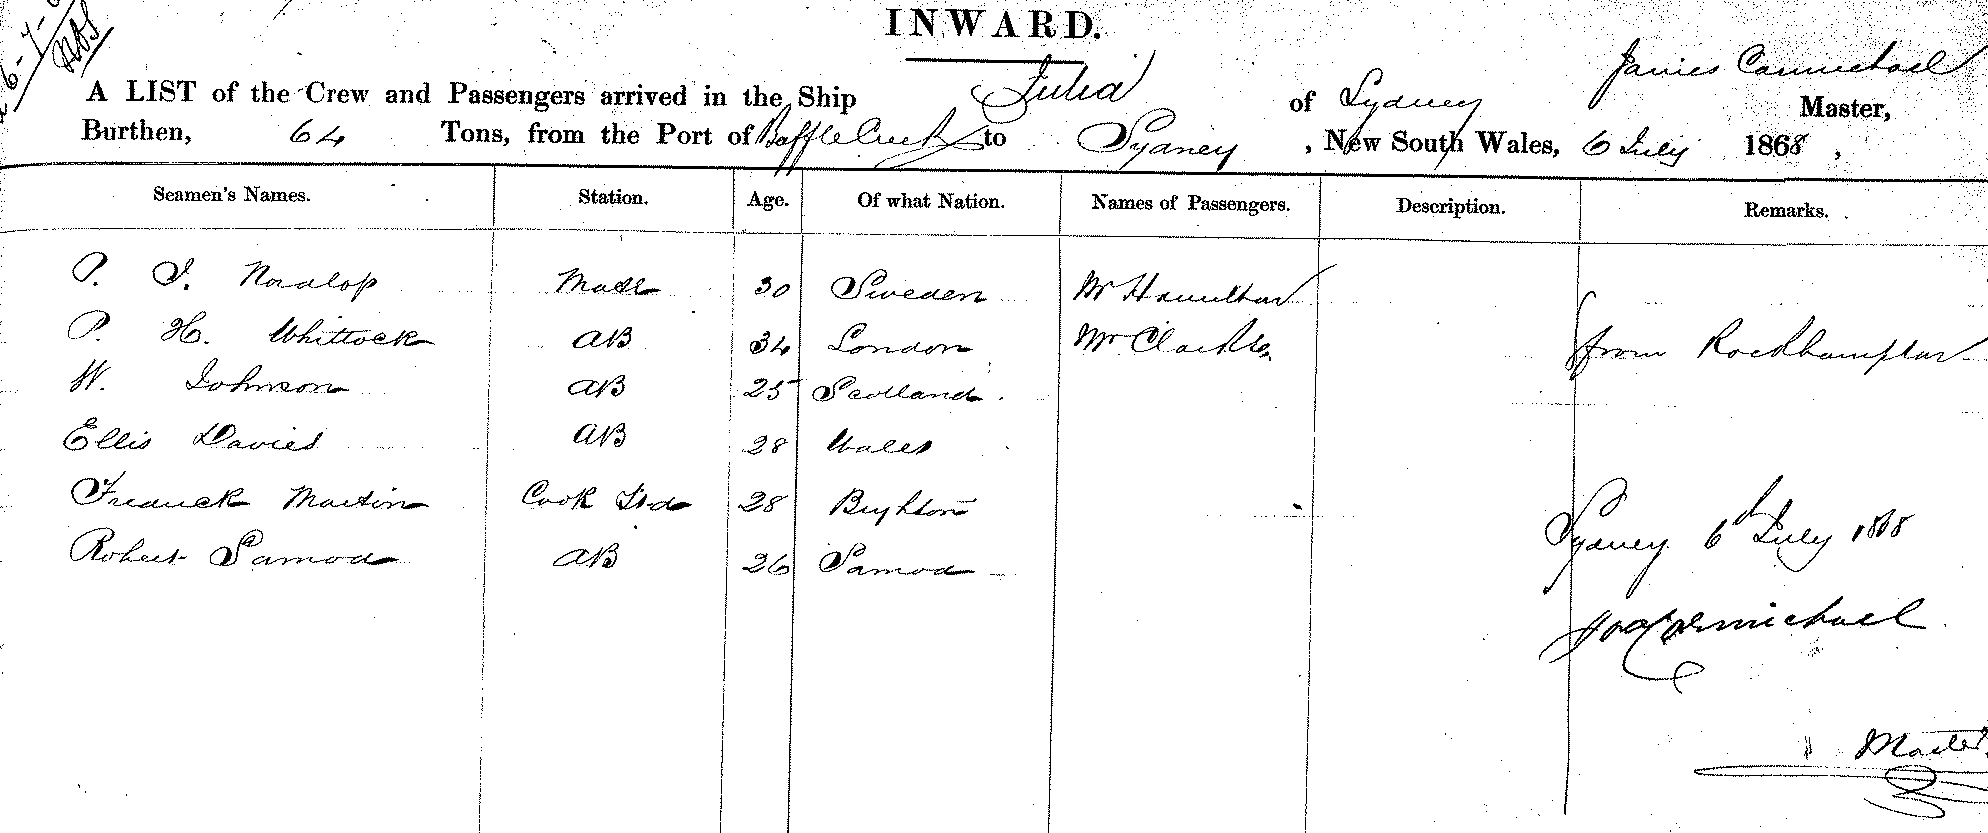 6-7-
INWARD.
A LIST of the Crew and Passengers arrived in the Ship Julia of Sydney James Carmichael Master,
Burthen, 64 Tons, from the Port of Baffle Creek to Sydney, New South Wales, 6 July 1868,
Seamen's Names. Station. Age. Of what Nation. Names of Passengers. Description. Remarks.
P. J. Mate 30 Sweden Mr Hamilton
P. H. Whittock AB 34 London Mr Clarke from Rockhampton
W. Johnson AB 25 Scotland
Ellis Davies AB 28 Wales
Martin Cook Std 28 Brighton
Robert Samoa AB 26 Samoa
Sydney 6th July 1868
Jas Carmichael
Master